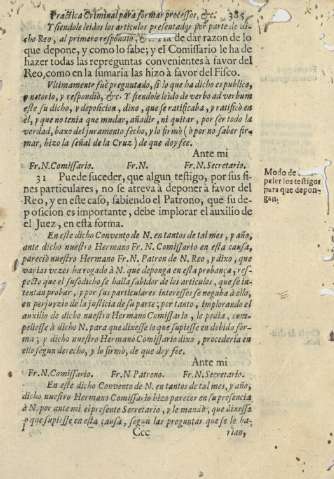 Practica Criminal para formar processos, &c. 385
Y siendole leidos los articulos presentados por parte de di-
cho Reo, al primero respondiò, &c. Ha de dar razon de lo
que depone, y como lo sabe; y el Comissario le ha de
hazer todas las repreguntas convenientes à favor del
Reo, como en la sumaria las hizo à favor del Fisco.
Vltimamente fuè preguntado, si lo que ha dicho es publico,
y notorio, y respondiò, &c. Y siendole leido de verbo ad verbum
este su dicho, y deposicion, dixo, que se ratificaba, y ratificò en
èl, y que no tenia que mudar, añadir, ni quitar, por ser todo la
verdad, baxo del juramento fecho, y lo firmò (ò por no saber fir-
mar, hizo la señal de la Cruz) de que doy fee.
Ante mi
Fr. N. Comissario. Fr. N. Fr. N. Secretario.
31 Puede suceder, que algun testigo, por sus fi-
nes particulares, no se atreva à deponer à favor del
Reo, y en este caso, sabiendo el Patrono, que su de-
posicion es importante, debe implorar el auxilio de
el Juez, en esta forma.
Modo de
peler los testigos
para que depon-
gan.
En este dicho Convento de N. en tantos de tal mes, y año,
ante dicho nuestro Hermano Fr. N. Comissario en esta causa,
pareciò nuestro Hermano Fr. N. Patron de N. Reo, y dixo, que
varias vezes ha rogado à N. que deponga en esta probança, res-
pecto que el susodicho se halla sabidor de los articulos, que se in-
tentan probar, y por sus particulares interesses se negaba à ello,
en perjuyzio de la justicia de su parte; por tanto, implorando el
auxilio de dicho nuestro Hermano Comissario, le pedia, com-
peliesse à dicho N. para que dixesse lo que supiesse en debida for-
ma; y dicho nuestro Hermano Comissario dixo, procederia en
ello segun derecho, y lo firmò, de que doy fee.
Ante mi
Fr. N. Comissario. Fr. N. Patrono. Fr. N. Secretario.
En este dicho Convento de N. en tantos de tal mes, y año,
dicho nuestro Hermano Comissario hizo parecer en su presencia
à N. por ante mi el presente Secretario, y le mandò, que dixesse
lo que supiesse en esta causa, segun las preguntas que se le ha-
Ccc rian,